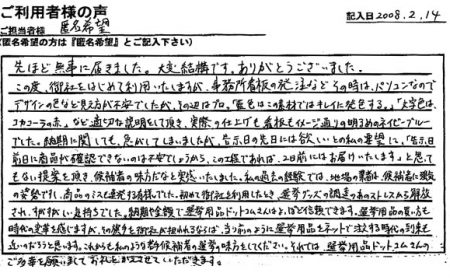 ご利用者様の声
ご担当者様 匿名希望
記入日 2008.2.14
(匿名希望の方は『匿名希望』とご記入下さい)
先ほど無事に届きました。大変結構です。ありがとうございました。
この度、御社をはじめて利用いたしますが、事務所看板の発注など その時は、パソコンなので
デザインの色など見え方が不安でしたが、その辺はプロ。「藍色はこの素材ではキレイに発色する。」「文字色は、
コカコーラの赤」など適切な説明をして頂き、実際の仕上りも看板もイメージ通りの明るめのネイビーブルー
でした。納期に関しても、急がしてしまいましたが、告示日の先日には欲しいとの私の要望に、「告示日
前日に商品が確認できないのは不安でしょうから、この工程であれば、2日前にはお届けいたします」と思って
もない提案を頂き、候補者の味方だなと実感いたしました。私の過去の経験では、地場の業者は、候補者に強気
の姿勢ですし、商品のミスも連発する有様でした。初めて御社を利用したとき、選挙グッズの調達のあのストレスから解放
され、すがすがしい気持ちでした。納期も金額で選挙用品ドットコムさんはよっぽど信頼できます。選挙用品の買い方も
時代の変革を感じますが、その責を御社が担われるならば、当り前のように選挙用品をネットで注文する時代の到来も
近いのだろうと思います。これからも私のような新人候補者の選挙の味方をしてください。それでは、選挙用品ドットコムさんの
ご多幸を願いましてお礼とかえさせていただきます。